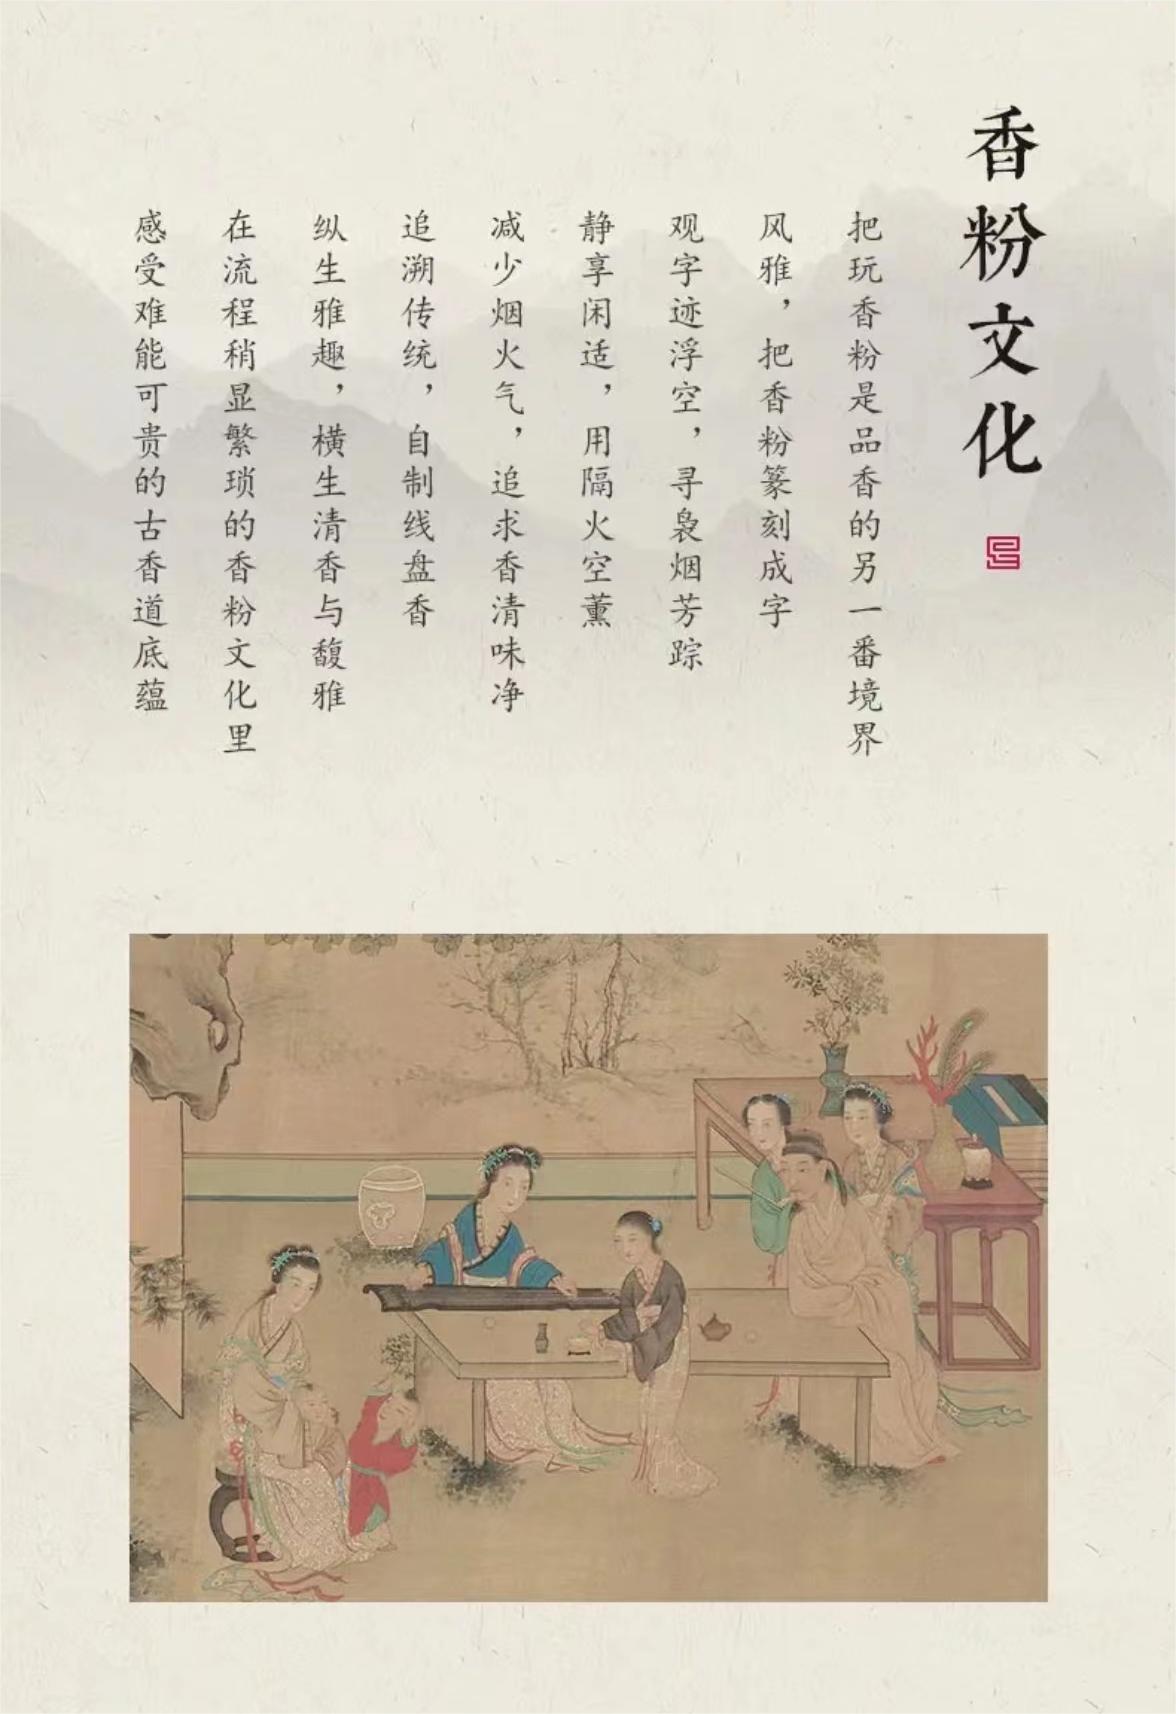 香粉文化
把玩香粉是品香的另一番境界
风雅，把香粉篆刻成字
观字迹浮空，寻袅烟芳踪
静享闲适，用隔火空薰
减少烟火气，追求香清味净
追溯传统，自制线盘香
纵生雅趣，横生清香与馥雅
在流程稍显繁琐的香粉文化里
感受难能可贵的古香道底蕴